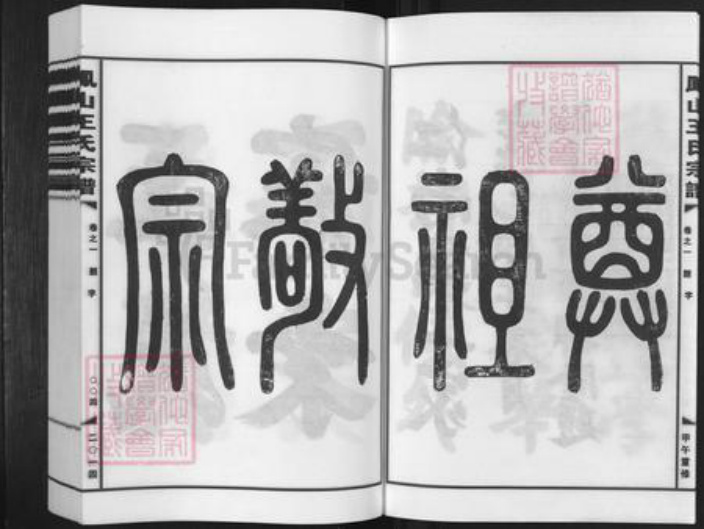 尊祖
敬宗
鳳山王氏宗譜
卷之一 題字
甲午重修
鳳山王氏宗譜
卷之一 題字
FamilySearch